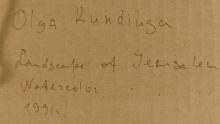 Olga Kundinga
Landscape of Jerusalem
Watercolor
1991.